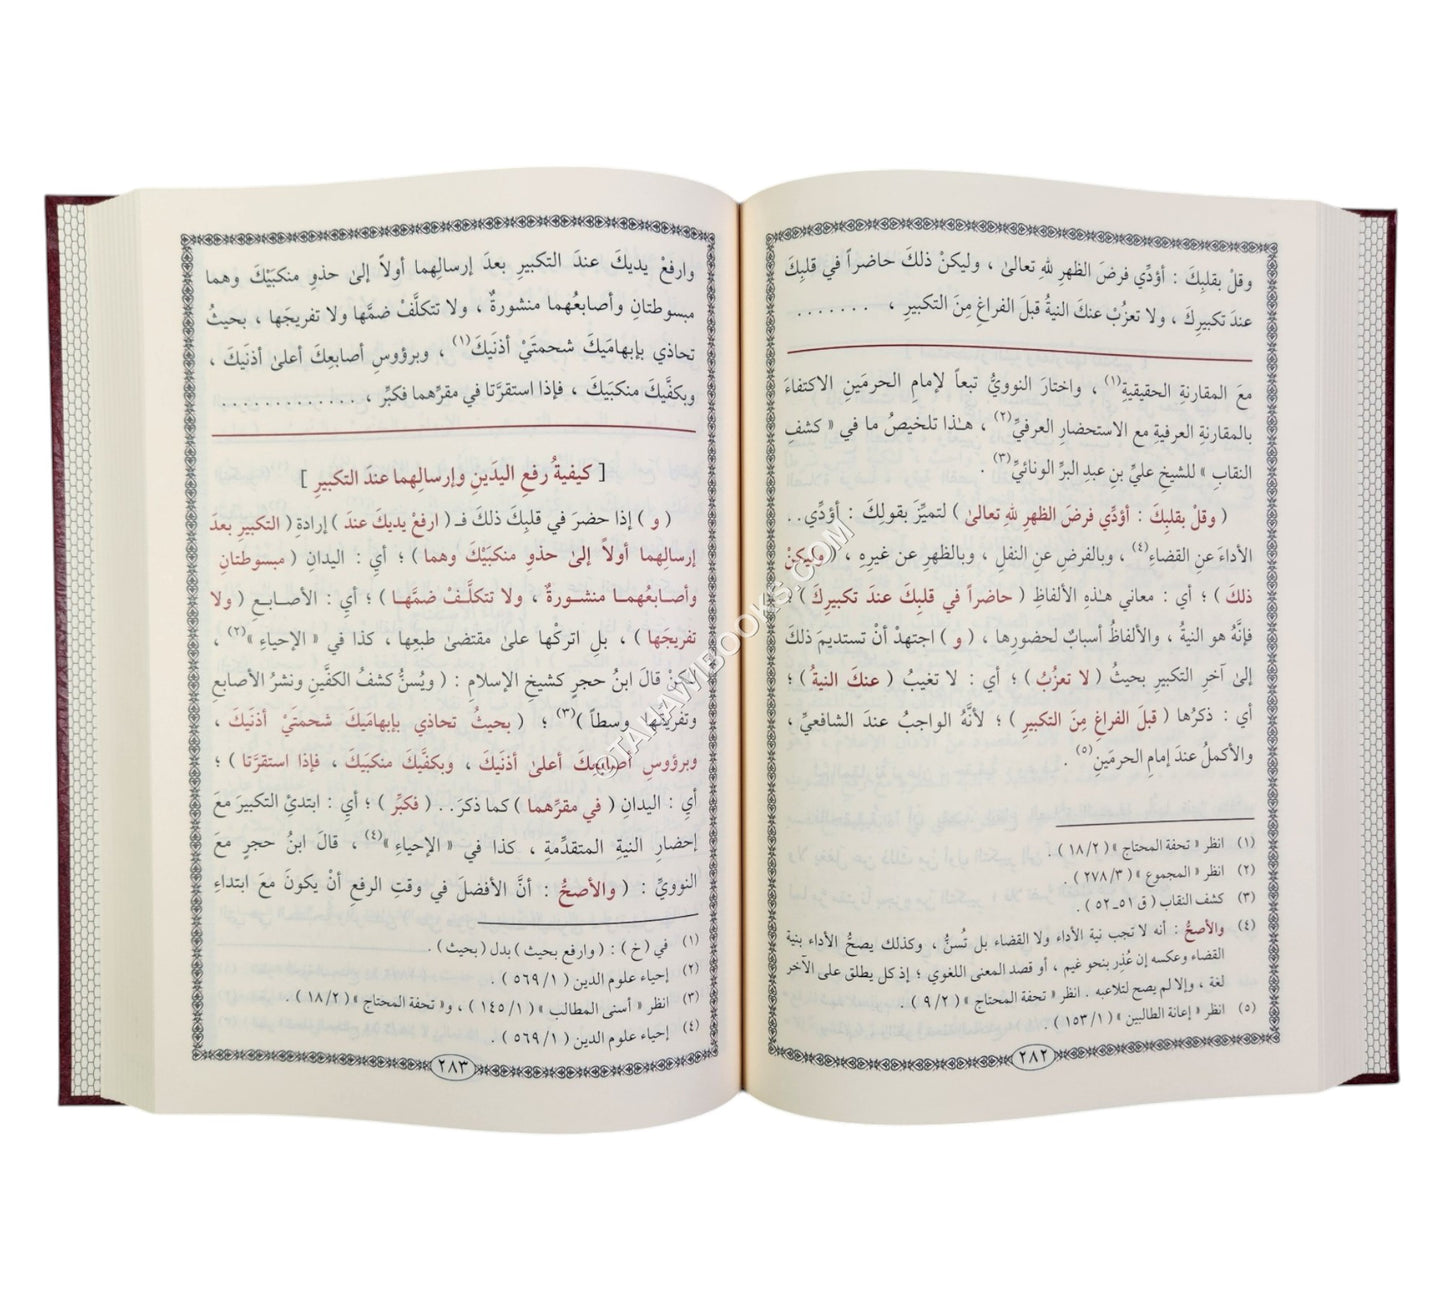 وقلْ بقلبِكَ : أؤدِّي فرضَ الظهرِ للهِ تعالىٰ ، وليكنْ ذلكَ حاضراً في قلبِكَ
عندَ تكبيرِكَ ، ولا تعزُبْ عنكَ النيةُ قبلَ الفراغِ مِنَ التكبيرِ ، . . . . . . .
معَ المقارنةِ الحقيقيةِ(١) ، واختارَ النوويُّ تبعاً لإمامِ الحرمَينِ الاكتفاءَ
بالمقارنةِ العرفيةِ مع الاستحضارِ العرفيِّ(٢) ، هـٰذا تلخيصُ ما في « كشفِ
النقابِ » للشيخِ عليِّ بنِ عبدِ البرِّ الونائيِّ(٣) .
( وقلْ بقلبِكَ : أؤدِّي فرضَ الظهرِ للهِ تعالىٰ ) لتميِّزَ بقولِكَ : أؤدِّي . .
الأداءَ عنِ القضاءِ(٤) ، وبالفرضِ عنِ النفلِ ، وبالظهرِ عن غيرِهِ ، ( وليكنْ
ذلكَ ) ؛ أي : معاني هـٰذهِ الألفاظِ ( حاضراً في قلبِكَ عندَ تكبيرِكَ ) ؛
فإنَّهُ هو النيةُ ، والألفاظُ أسبابٌ لحضورِها ، ( و ) اجتهدْ أنْ تستديمَ ذلكَ
إلىٰ آخرِ التكبيرِ بحيثُ ( لا تعزُبُ ) ؛ أي : لا تغيبُ ( عنكَ النيةُ ) ؛
أي : ذكرُها ( قبلَ الفراغِ مِنَ التكبيرِ ) ؛ لأنَّهُ الواجبُ عندَ الشافعيِّ ،
والأكملُ عندَ إمامِ الحرمَينِ(٥) .
(١) انظر « تحفة المحتاج » ( ١٨/٢ ) .
(٢) انظر « المجموع » ( ٢٧٨/٣ ) .
(٣) كشف النقاب ( ق ٥١ـ٥٢ ) .
(٤) والأصحُّ : أنه لا تجب نية الأداء ولا القضاء بل تُسنُّ ، وكذلك يصحُّ الأداء بنية
القضاء وعكسه إن عُذِر بنحو غيم ، أو قصد المعنى اللغوي ؛ إذ كل يطلق على الآخر
لغة ، وإلا لم يصح لتلاعبه . انظر « تحفة المحتاج » ( ٩/٢ ) .
(٥) انظر « إعانة الطالبين » ( ١٥٣/١ ) .
٢٨٢
وارفعْ يديكَ عندَ التكبيرِ بعدَ إرسالِهما أولاً إلىٰ حذوِ منكبَيْكَ وهما
مبسوطتانِ وأصابعُهما منشورةٌ ، ولا تتكلَّفْ ضمَّها ولا تفريجَها ، بحيثُ
تحاذي بإبهامَيكَ شحمتَيْ أذنَيكَ(١) ، وبرؤوسِ أصابعِكَ أعلىٰ أذنَيكَ ،
وبكفَّيكَ منكبَيكَ ، فإذا استقرَّتا في مقرِّهما فكبِّر ، . . . . . . . . . . . . .
[ كيفيةُ رفعِ اليدَينِ وإرسالِهما عندَ التكبيرِ ]
( و ) إذا حضرَ في قلبِكَ ذلكَ فـ ( ارفعْ يديكَ عندَ ) إرادةِ ( التكبيرِ بعدَ
إرسالِهما أولاً إلىٰ حذوِ منكبَيْكَ وهما ) ؛ أيِ : اليدانِ ( مبسوطتانِ
وأصـابعُهمـا منشـورةٌ ، ولا تتكلَّـفْ ضمَّهـا ) ؛ أيِ : الأصـابـعِ ( ولا
تفريجَها ) ، بلِ اتركْها علىٰ مقتضىٰ طبعِها ، كذا في « الإحياءِ »(٢) ،
لكنْ قالَ ابنُ حجرٍ كشيخِ الإسلامِ : ( ويُسنُّ كشفُ الكفَّينِ ونشرُ الأصابعِ
وتفريقُها وسطاً )(٣) ؛ ( بحيثُ تحاذي بإبهامَيكَ شحمتَيْ أذنَيكَ ،
وبرؤوسِ أصابعِكَ أعلىٰ أذنَيكَ ، وبكفَّيكَ منكبَيكَ ، فإذا استقرَّتا ) ؛
أيِ : اليدانِ ( في مقرِّهما ) كما ذكرَ . . ( فكبِّر ) ؛ أيِ : ابتدئِ التكبيرَ معَ
إحضارِ النيةِ المتقدِّمةِ ، كذا في « الإحياءِ »(٤) ، قالَ ابنُ حجرٍ معَ
النوويِّ : ( والأصحُّ : أنَّ الأفضلَ في وقتِ الرفعِ أنْ يكونَ معَ ابتداءِ
(١) في ( خ ) : ( وارفع بحيث ) بدل ( بحيث ) .
(٢) إحياء علوم الدين ( ٥٦٩/١ ) .
(٣) انظر « أسنى المطالب » ( ١٤٥/١ ) ، و« تحفة المحتاج » ( ١٨/٢ ) .
(٤) إحياء علوم الدين ( ٥٦٩/١ ) .
٢٨٣
©TAKLAWIBOOKS.COM